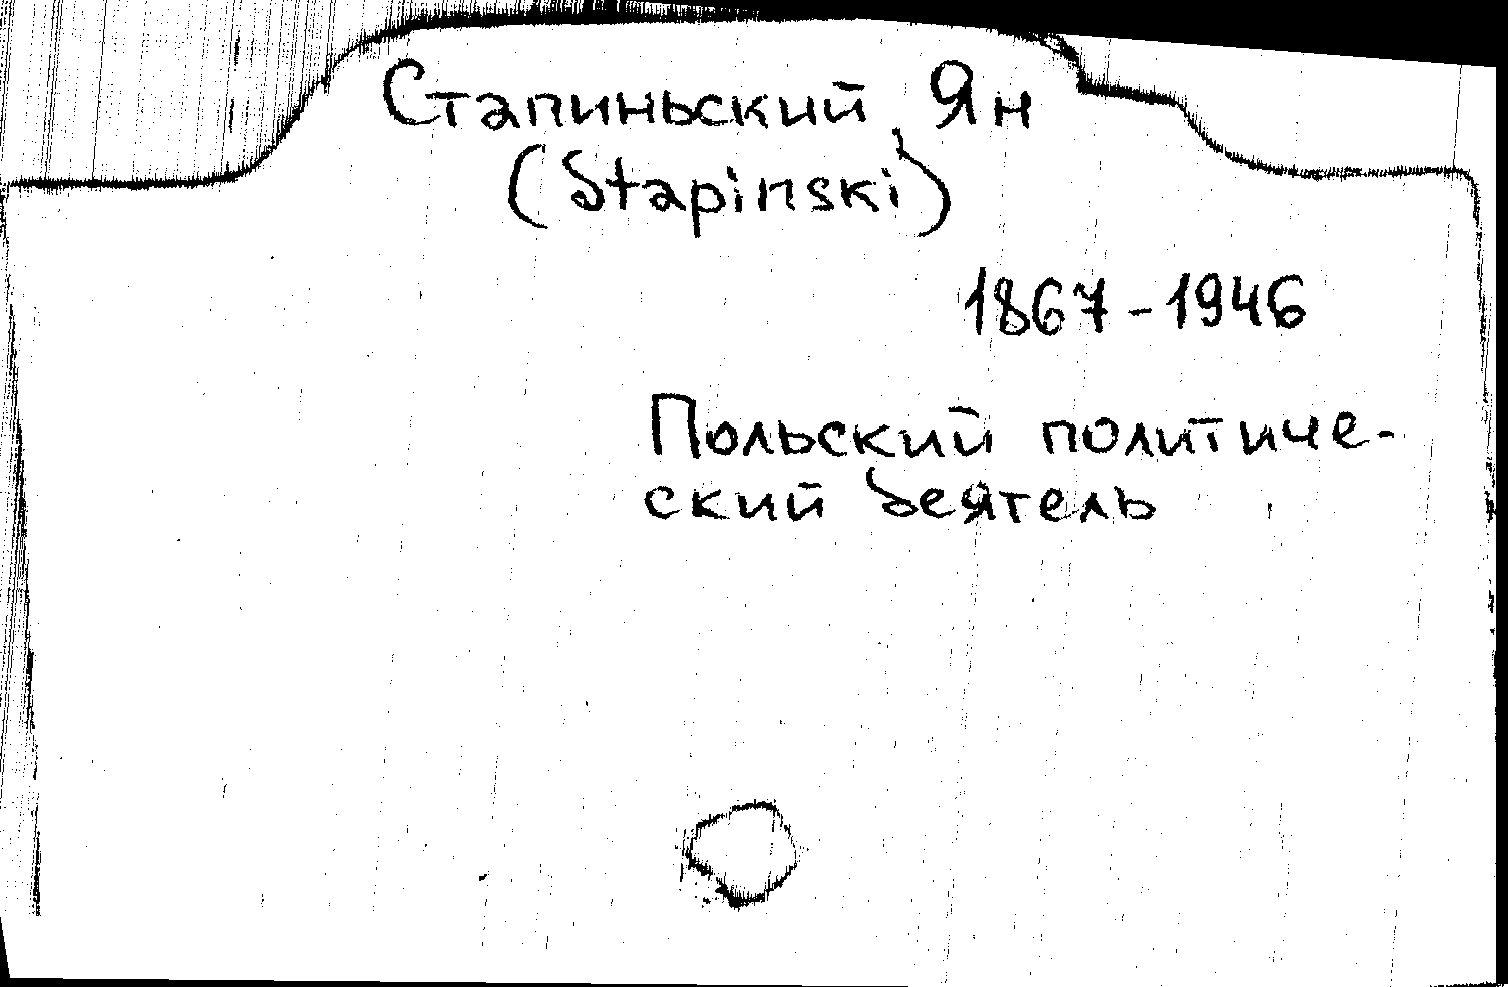 Стапиньский, Ян
(Stapinski)
1867-1946
Польский политиче-
ский деятель